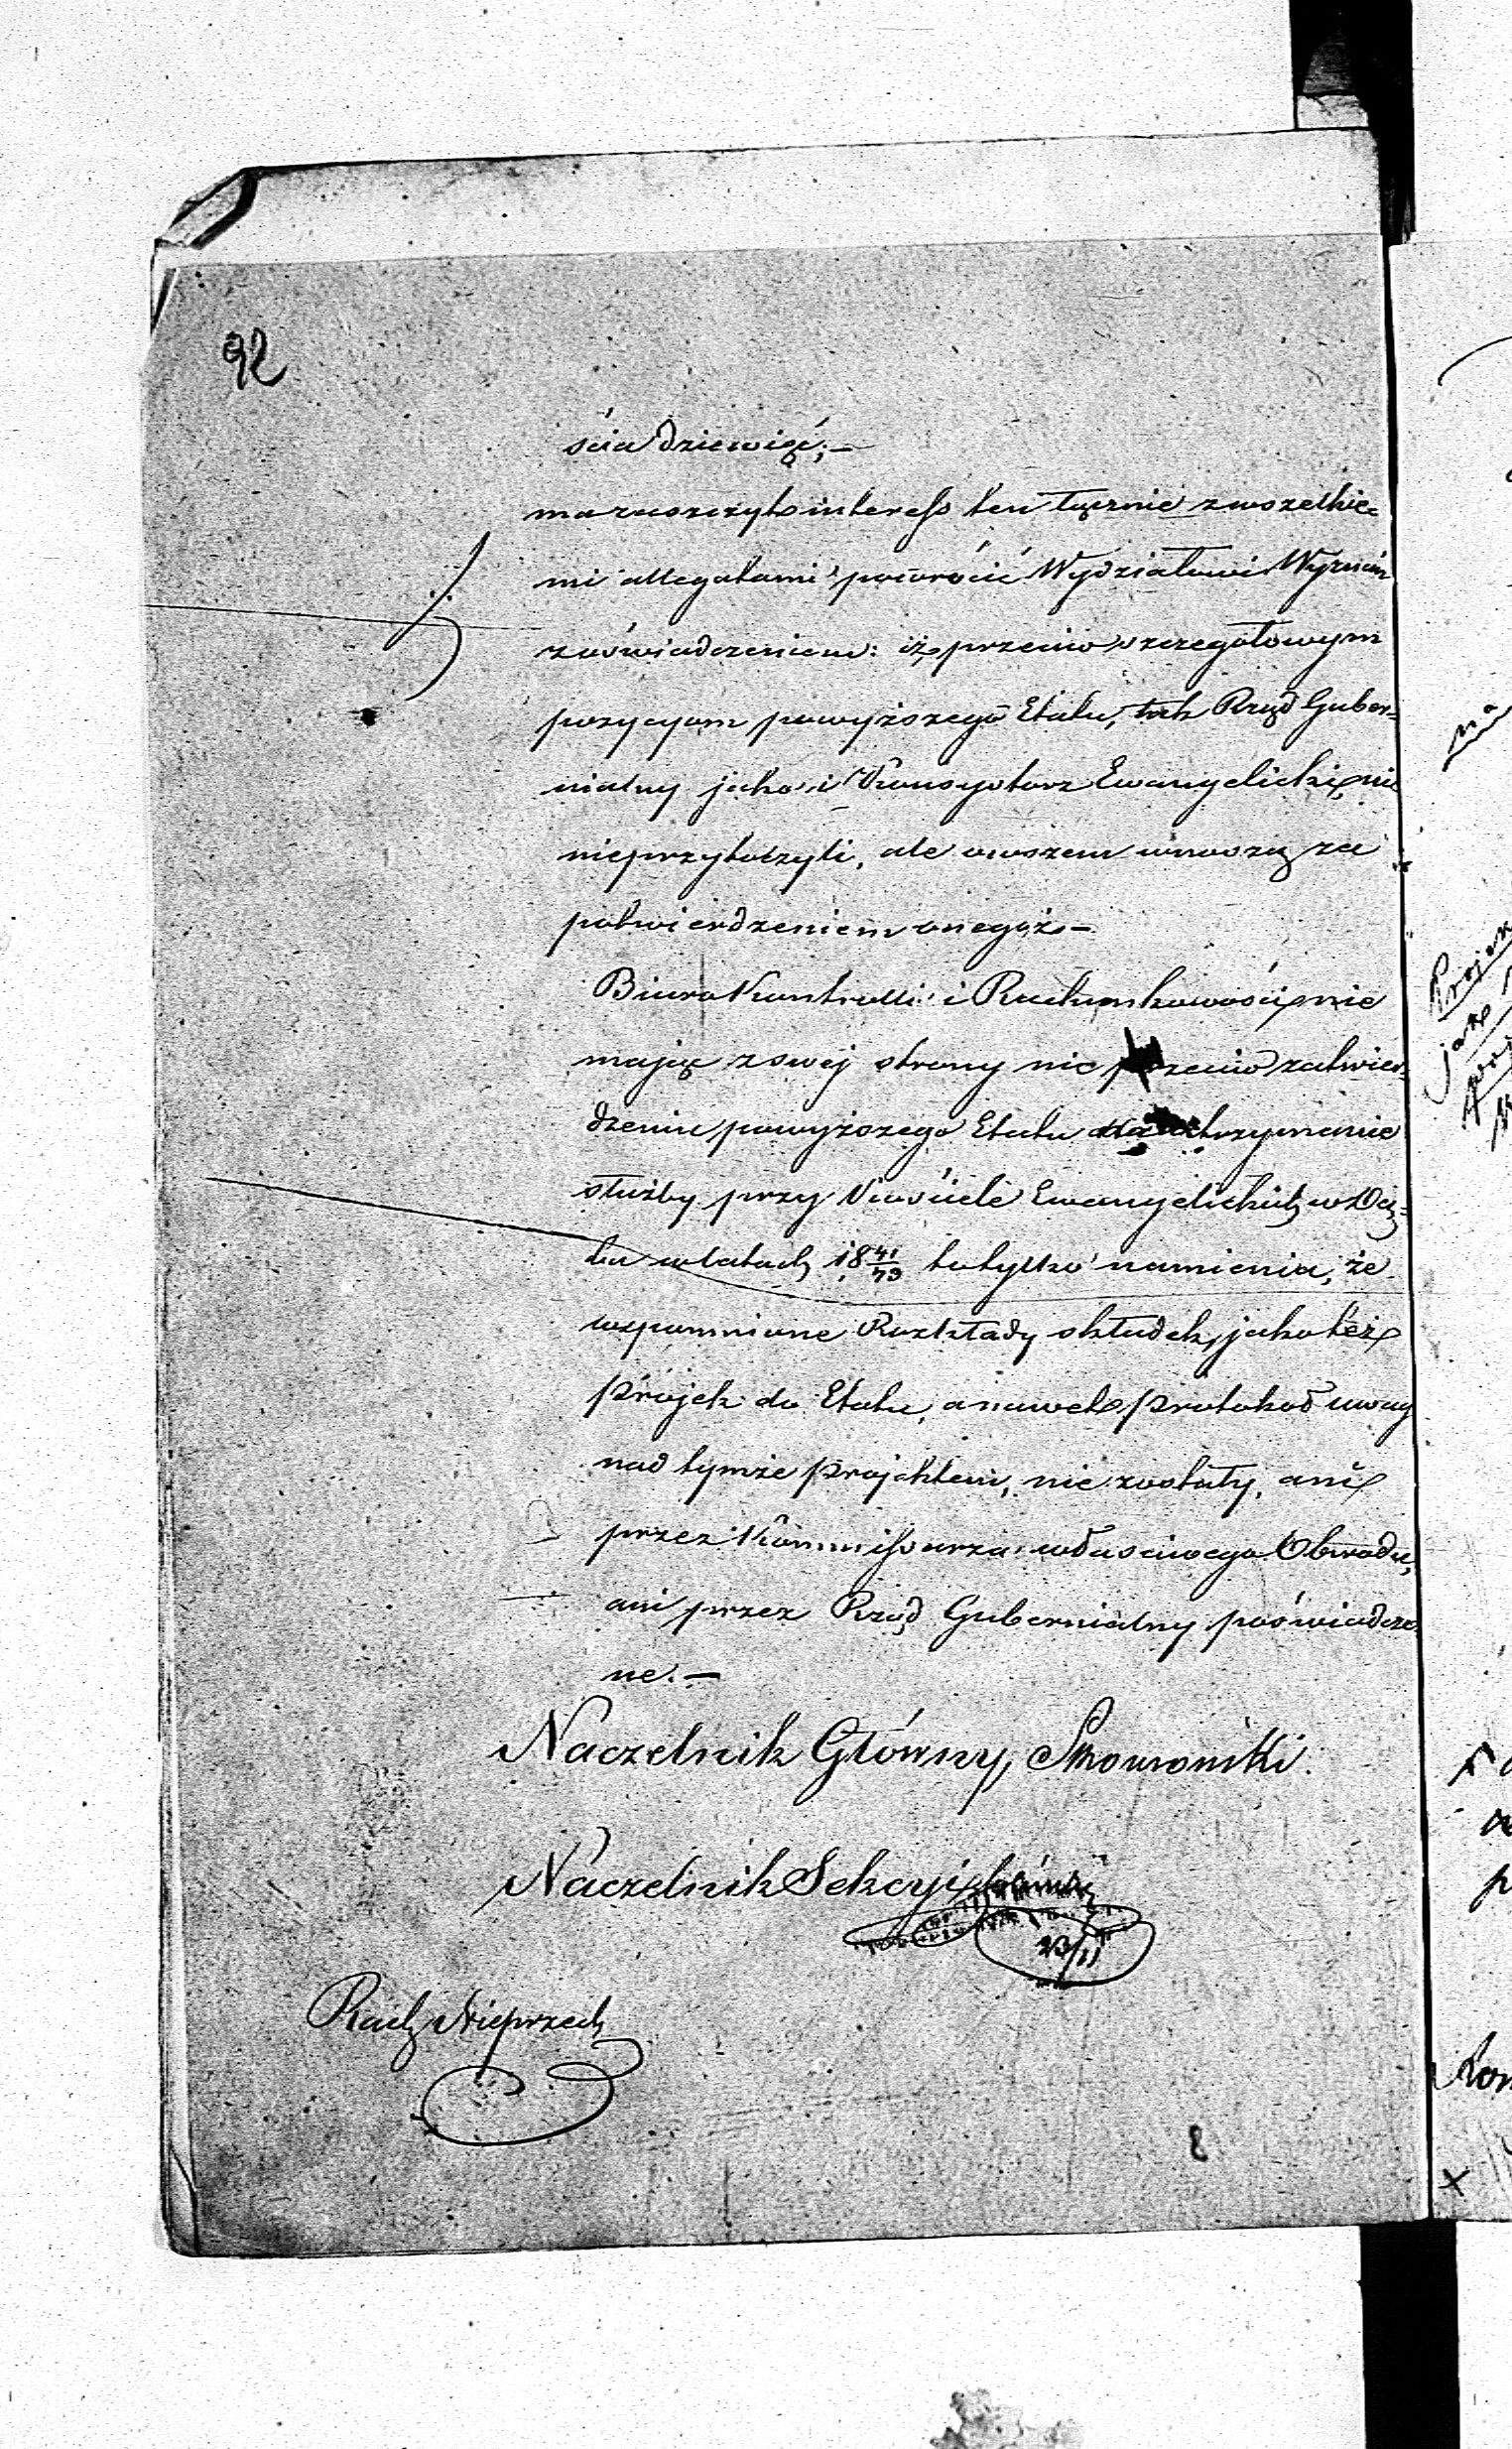 92
ścia dziewięć;—
ma zaszczyt interess ten łącznie z wszelkie=
mi allegatami powrócić Wydziałowi Wyznań
z oświadczeniem: iż przeciw szczegółowym
pozycyom powyższego Etatu, tak Rząd Guber=
nialny jako i Konsystorz Ewangelicki, nic
nieprzytoczyli, ale owszem wnoszą za
potwierdzeniem onegoż.—
Biuro Kontrolli i Rachunkowości, nie
mając z swej strony nic przeciw zatwier=
dzeniu powyższego Etatu na utrzymanie
służby przy Kościele Ewangelickich w
w latach 18 41/49 to tylko namienia, że
wspomnione Rozkłady składek, jako też
Projek do Etatu, a nawet Protokoł uwag
nad tymże Projektem, nie zostały, ani
przez Kommissarza właściwego Obwodu,
ani przez Rząd Gubernialny poświadczo=
ne.—
Naczelnik Główny, Skowroński.
Naczelnik Sekcyi
23/11
Rach Nieprzech
8